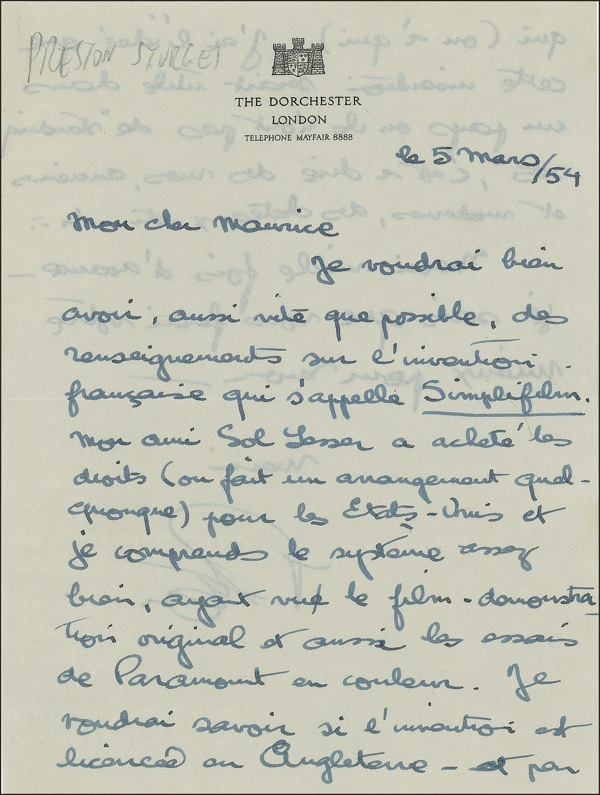 PRESTON STURGES
THE DORCHESTER
LONDON
TELEPHONE MAYFAIR 8888
le 5 Mars/54
Mon cher Maurice
Je voudrai bien
avoir, aussi vite que possible, des
renseignements sur l'invention
française qui s'appelle Simplifilm.
Mon ami Sol Lesser a acheté les
droits (ou fait un arrangement quel-
quonque) pour les Etats-Unis et
je comprends le système assez
bien, ayant vu le film-demonstra
tion original et aussi les essais
de Paramount en couleur. Je
voudrai savoir si l'invention est
licencée en Angleterre - et par